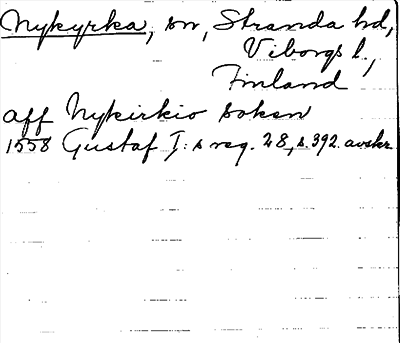 Nykyrka, sn, Stranda hd,
Viborgs l.,
Finland
aff Nykirkio soken
1558 Gustaf I:s reg. 28, s.392. avskr.